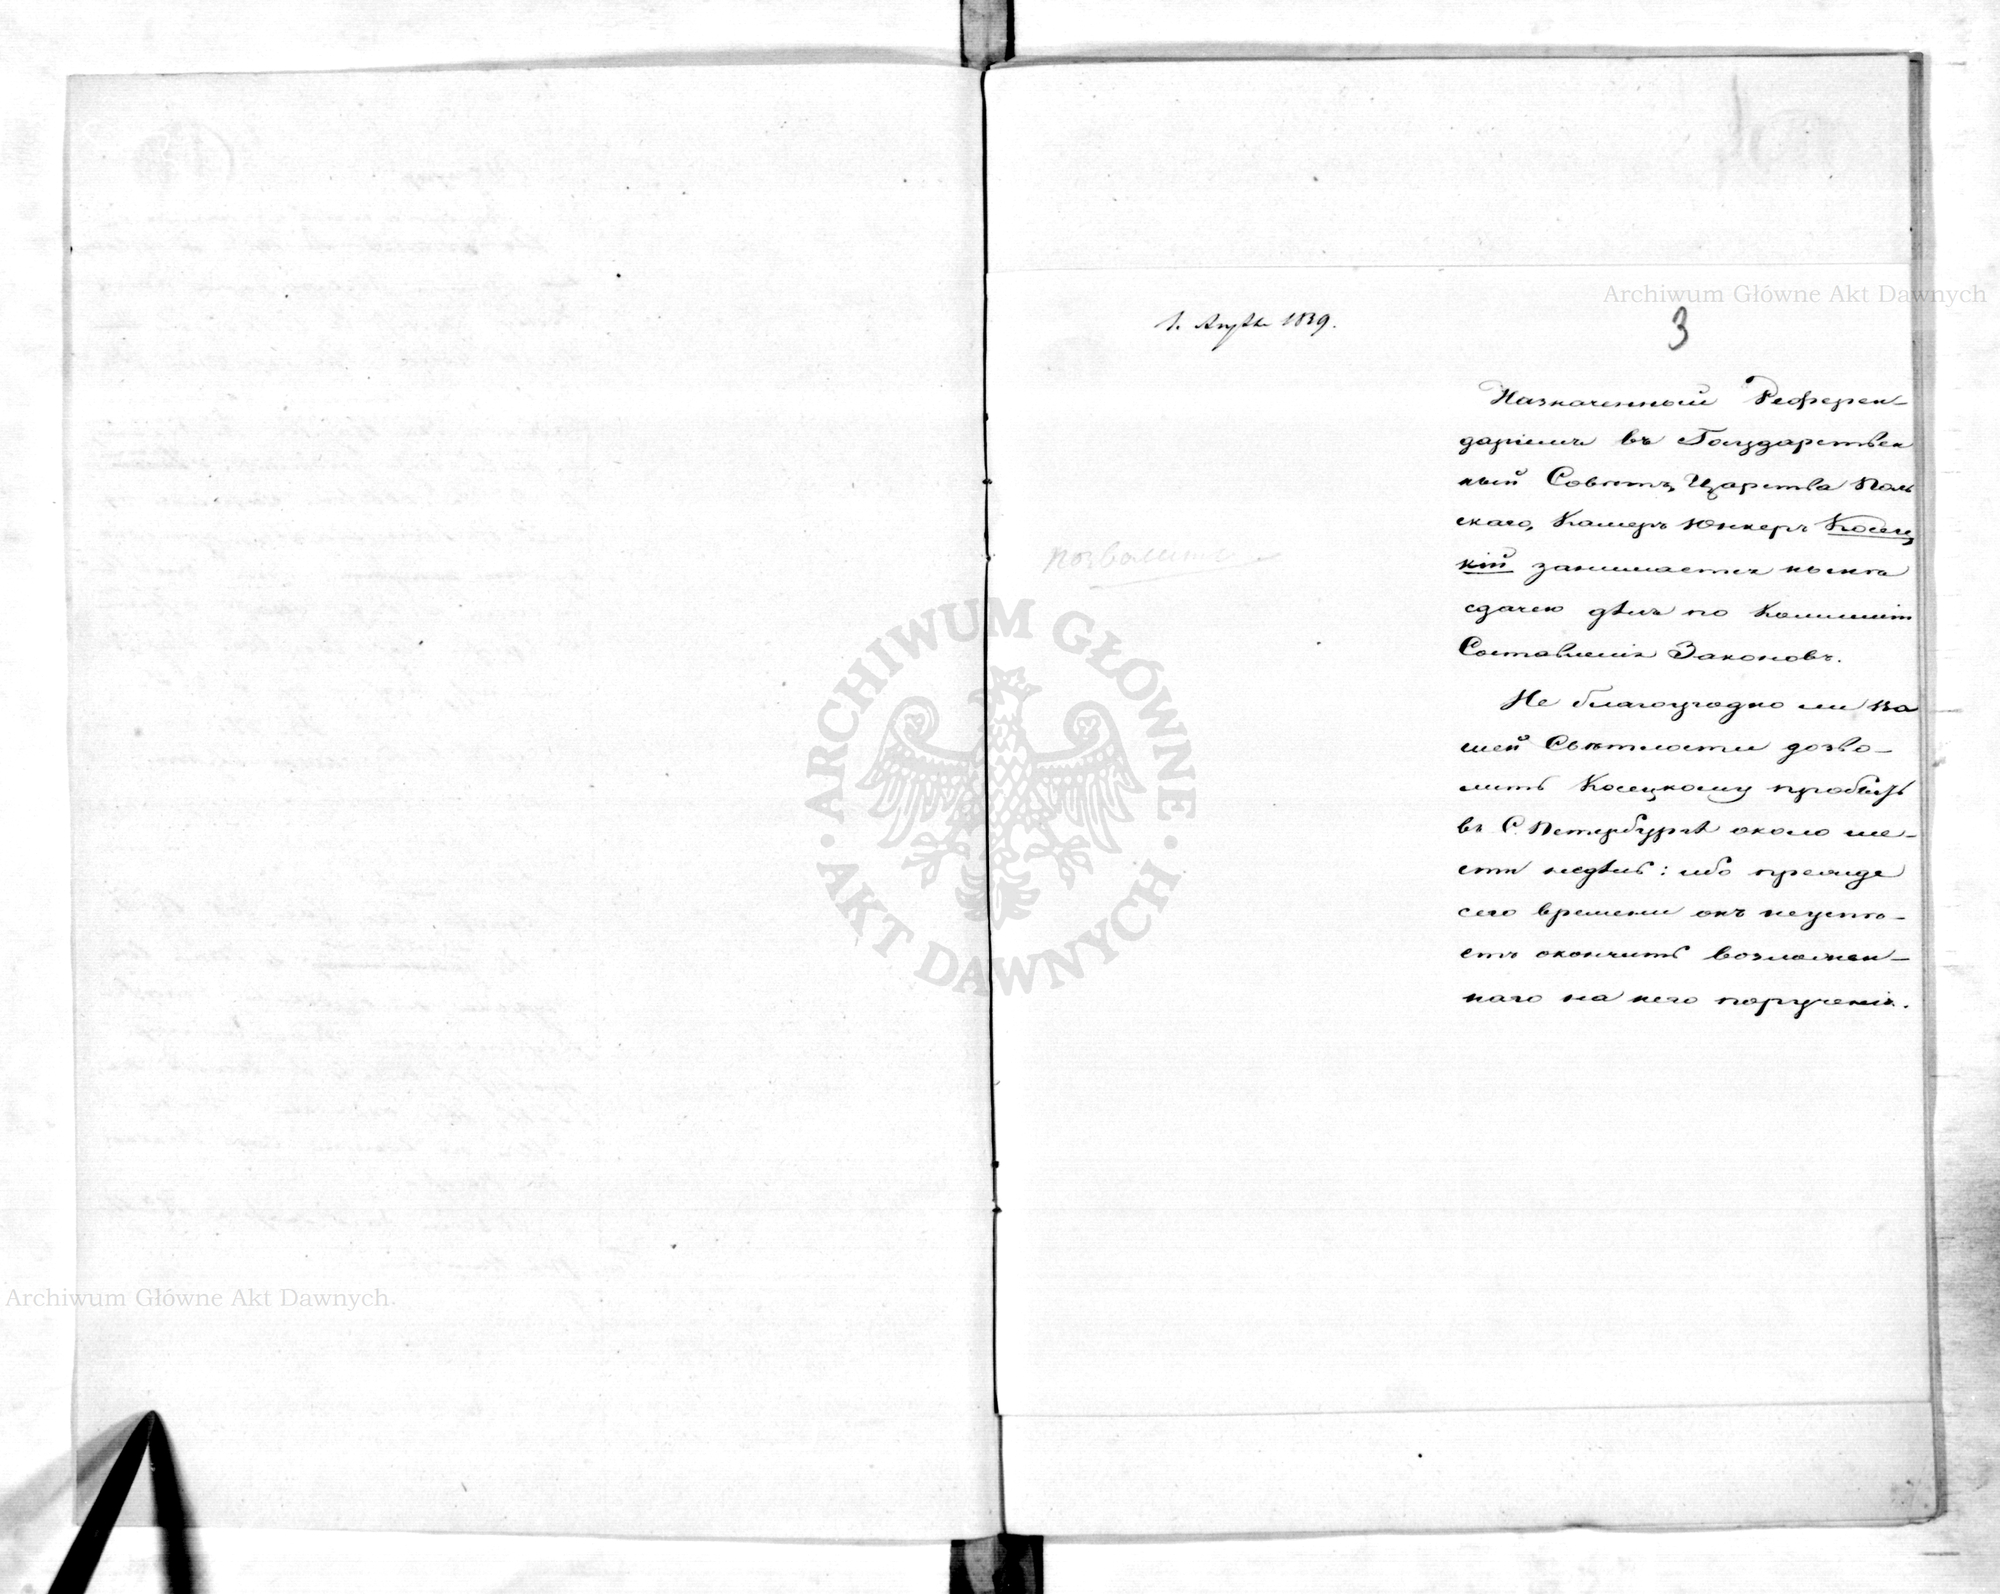 Archiwum Główne Akt Dawnych
1. 1839.
3
Назначенный Референ-
даріемъ въ Государствен
ный Совѣтъ Царства Поль
скаго, Камеръ Юнкеръ Косец
кій занимается нынѣ
сдачею дѣлъ по Коммисіи
Составленія Законовъ.
позволить
Не благоугодно ли Ва
шей Свѣтлости дозво-
лить Косецкому пробыть
въ С. Петербургѣ около ше-
сти недѣль: ибо прежде
сего времени онъ неуспѣ-
етъ окончить возложен-
наго на него порученія.
ARCHIWUM GŁÓWNE
AKT DAWNYCH
Archiwum Główne Akt Dawnych